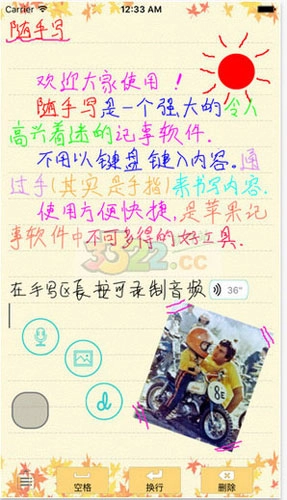 Carrier 12:33 AM
随手写
欢迎大家使用！
随手写是一个强大的令人
高兴着迷的记事软件.
不用以键盘键入内容。通
过手(其实是手指)来书写内容.
使用方便快捷,是苹果记
事软件中不可多得的好工具.
3322.cc
在手写区长按可录制音频 36"
d
8E
空格 换行 删除